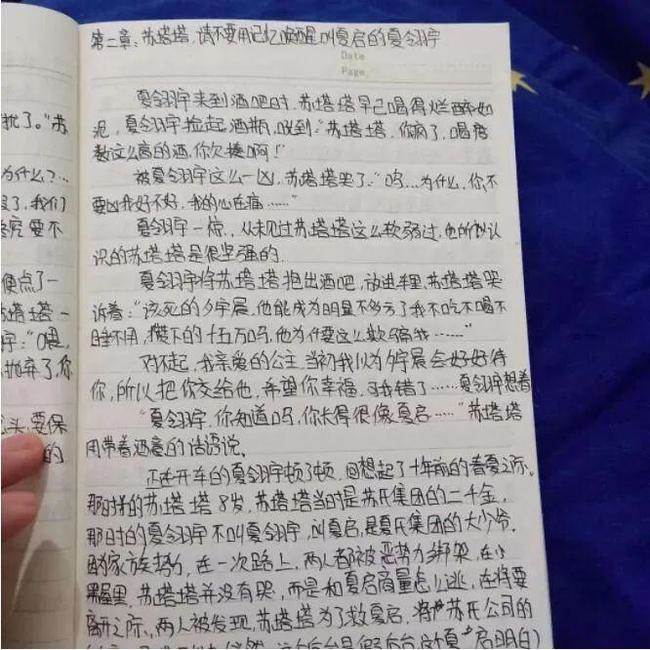 第二章：苏塔塔，请不要用记忆唤醒叫夏启的夏翎宇
Date
Page
批了。"苏
为什么？…
没了，我们
要不
便点了一
塔塔一
"喂，
抛弃了，你
头，要保
的
夏翎宇来到酒吧时，苏塔塔早已喝得烂醉如
泥，夏翎宇捡起酒瓶，吼到："苏塔塔，你疯了，喝度
数这么高的酒，你欠揍啊！"
被夏翎宇这么一凶，苏塔塔哭了："呜…为什么，你不
要凶我好不好，我的心在痛……"
夏翎宇一惊，从未见过苏塔塔这么软弱过，他所以认
识的苏塔塔是很坚强的.
夏翎宇将苏塔塔抱出酒吧，放进车里，苏塔塔哭
诉着："该死的夕宇晨，他能成为明星不多亏了我不吃不喝不
睡不用，攒下的十五万吗，他为什要这么欺骗我……"
对不起，我亲爱的公主，当初我以为夕宇晨会好好待
你，所以把你交给他，希望你幸福，可我错了……夏翎宇想着
"夏翎宇，你知道吗，你长得很像夏启……"苏塔塔
用带着酒意的话语说.
正在开车的夏翎宇顿了顿，回想起了十年前的春夏之际。
那时的苏塔塔8岁，苏塔塔当时是苏氏集团的二千金，
那日时的夏翎宇不叫夏翎宇，叫夏启，是夏氏集团的大少爷.
因家族势力，在一次路上，两人都被恶势力绑架，在小
黑屋里，苏塔塔并没有哭，而是和夏启商量怎么逃，在将要
离开之际，两人被发现，苏塔塔为了救夏启，将苏氏公司的
启明白)